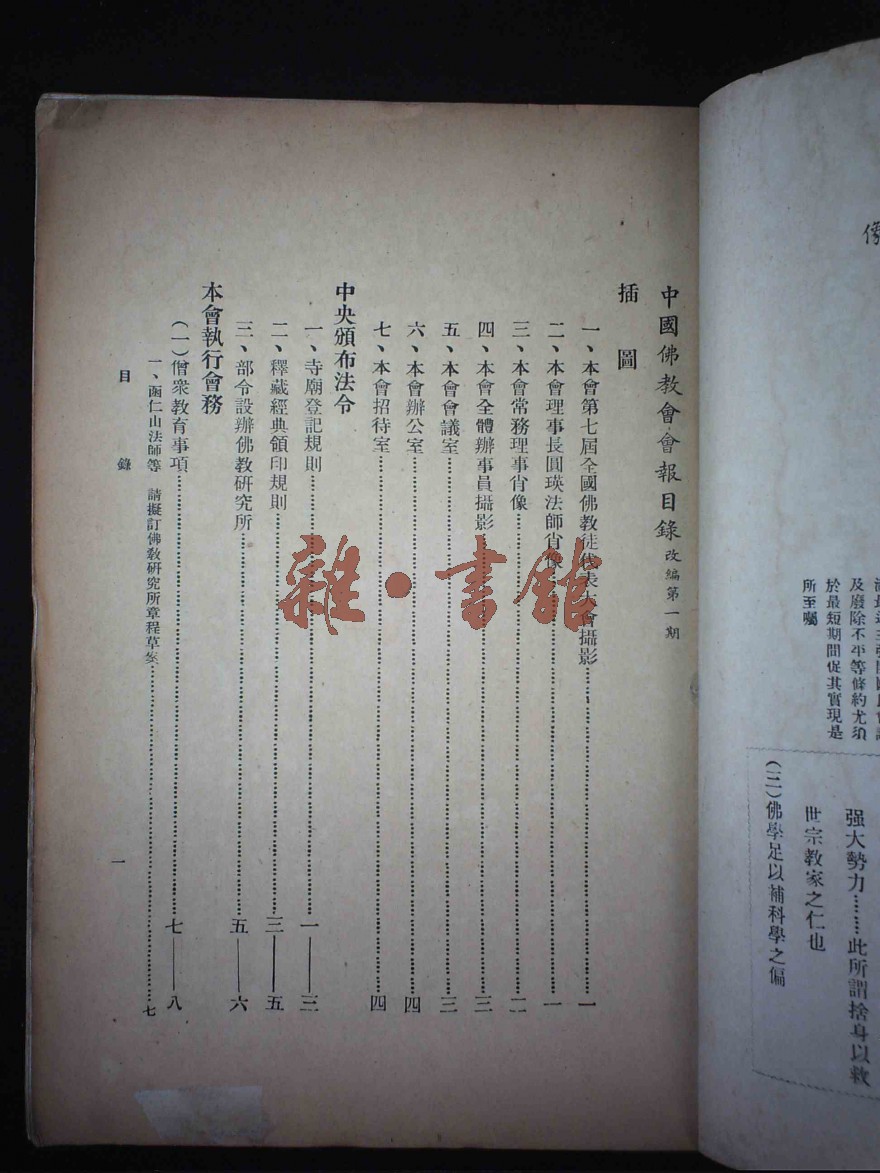 中國佛教會會報目錄 改編第一期
插圖
一、本會第七屆全國佛教徒代表大會攝影……一
二、本會理事長圓瑛法師肖像……一
三、本會常務理事肖像……二
四、本會全體辦事員攝影……三
五、本會會議室……三
六、本會辦公室……四
七、本會招待室……四
中央頒布法令
一、寺廟登記規則……一——三
二、釋藏經典領印規則……三——五
三、部令設辦佛教研究所……五——六
本會執行會務
(一)僧衆教育事項……七——八
一、 仁山法師等 請擬訂佛教研究所章程草案……七
目錄 一
像
及廢除不平等條約尤須
於最短期間促其實現是
所至囑
强大勢力……此所謂捨身以救
世宗教家之仁也
(三)佛學足以補科學之偏
雜·書館